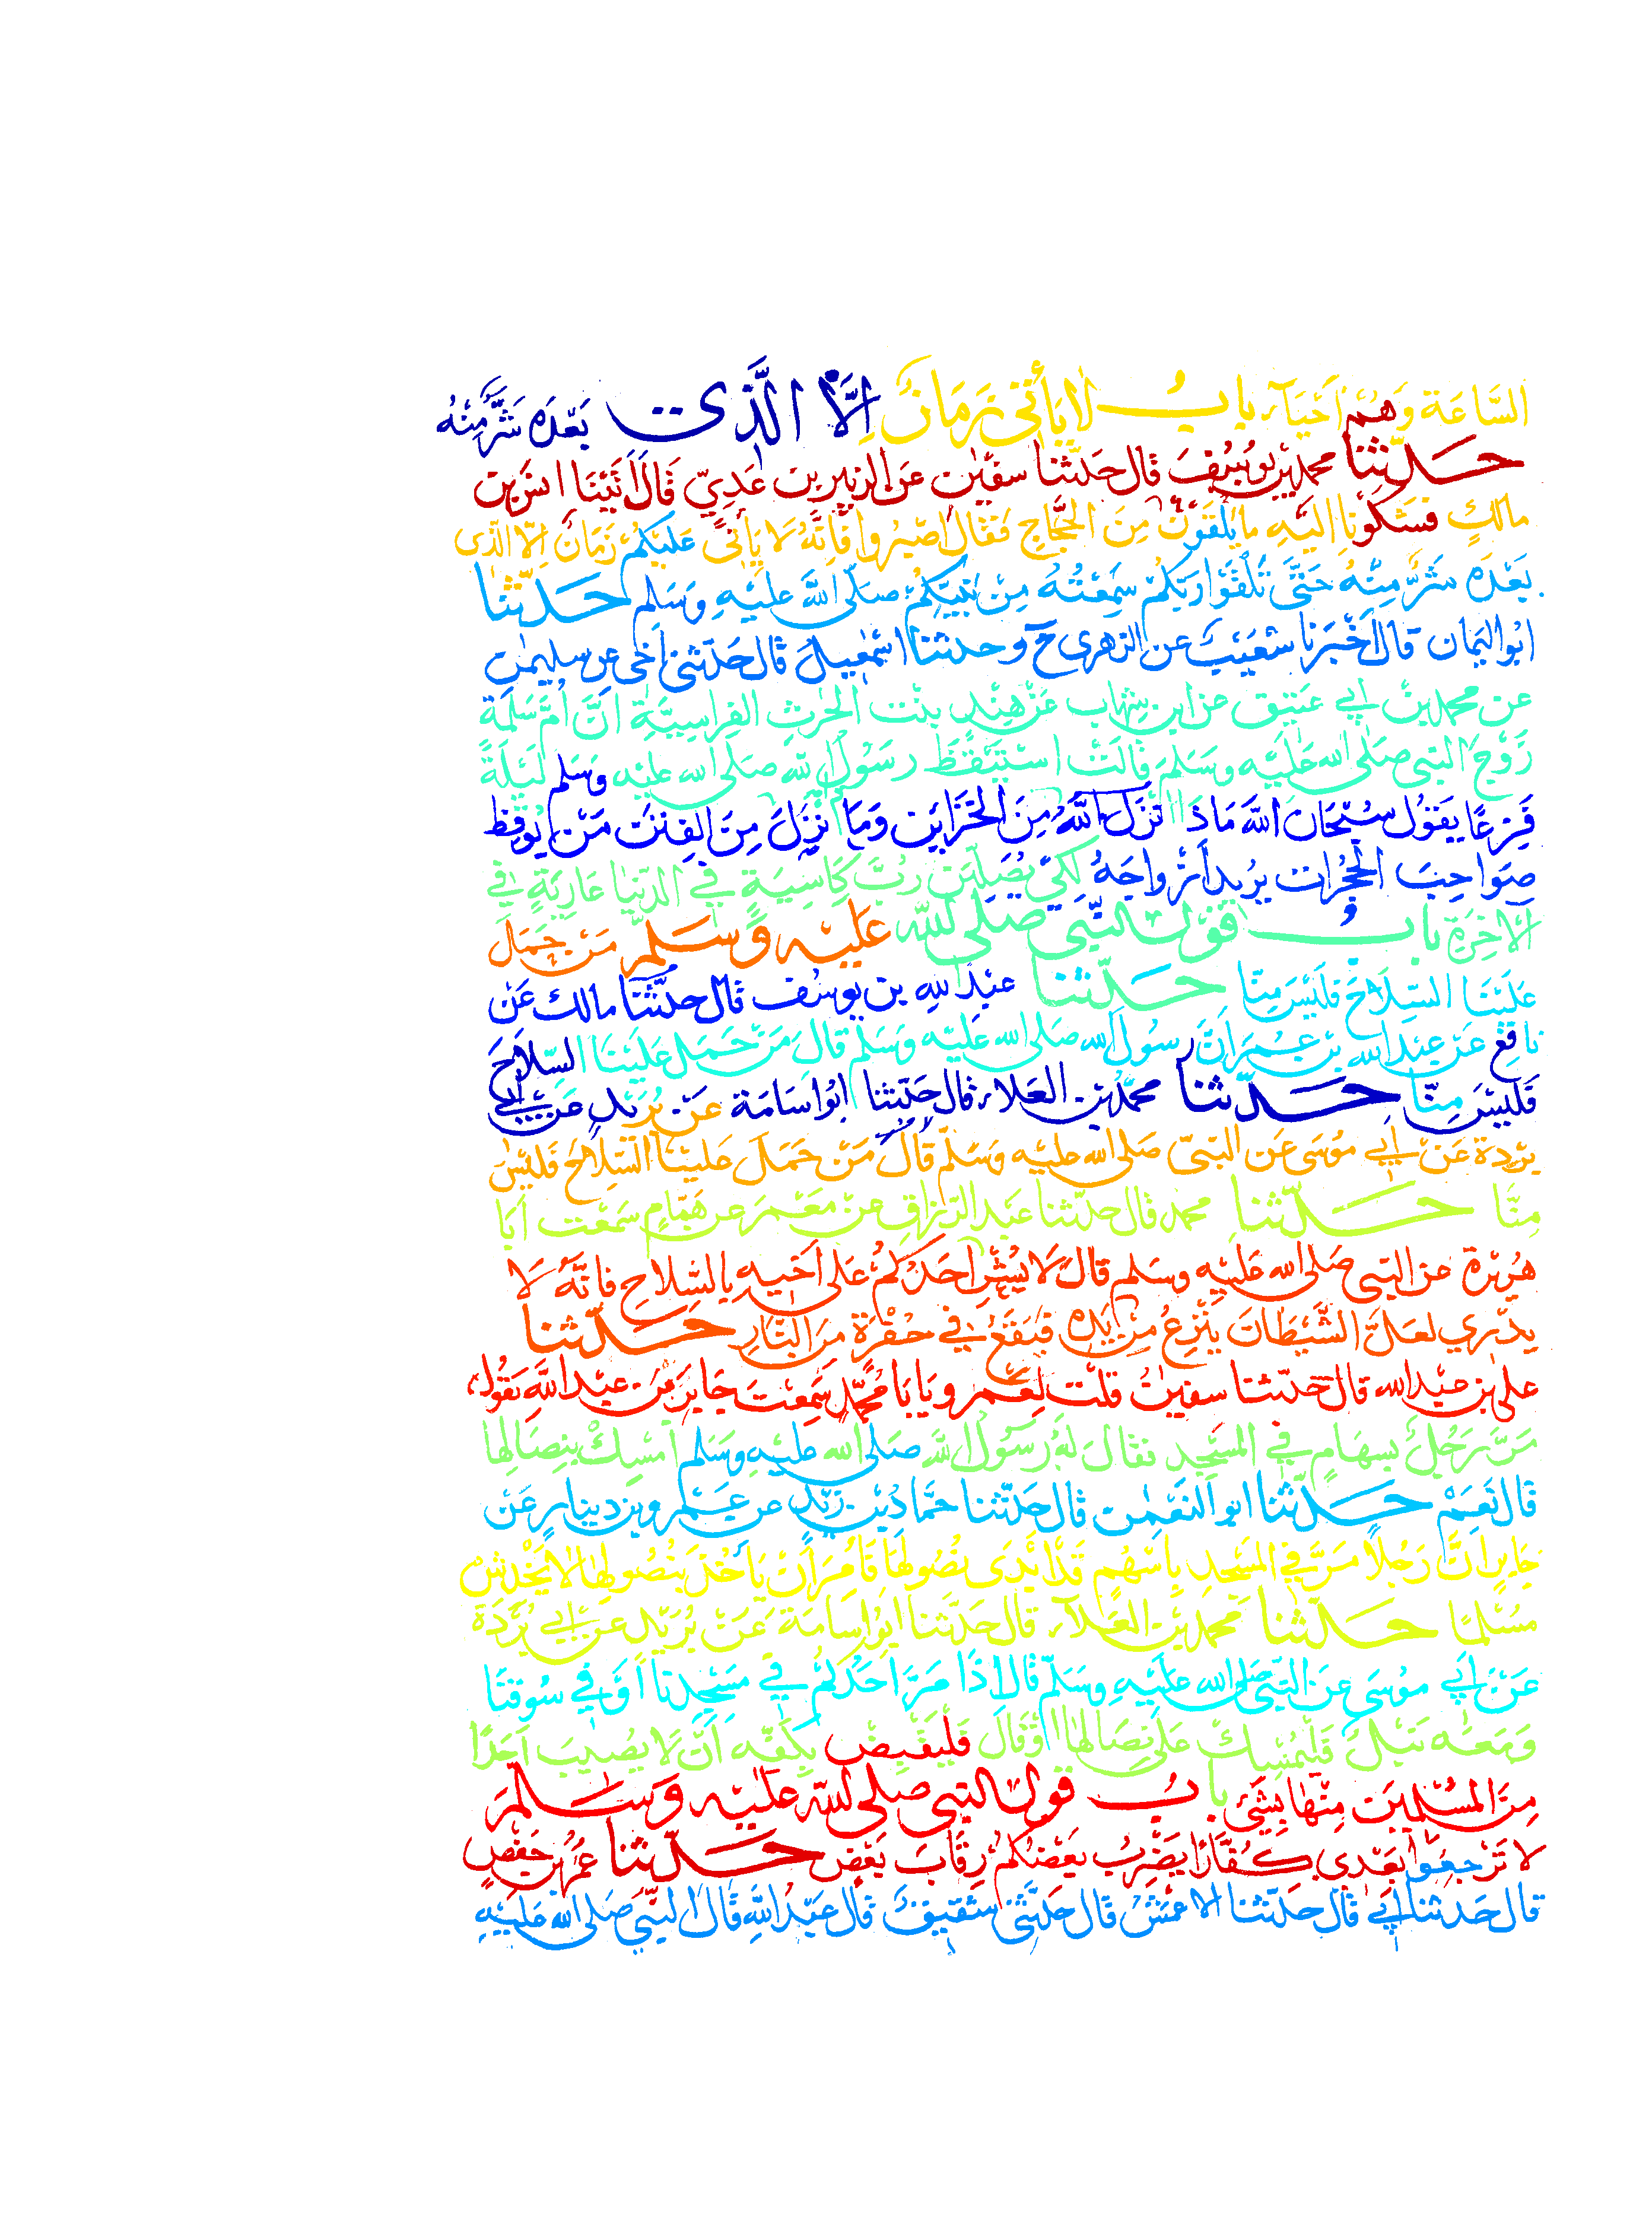 السَّاعَة وَهُمْ اَحْيَآء بابُ لا يَأْتى زَمَانٌ اِلَّا الَّذى بَعْدَه شَرٌّ مِنْهُ
حَدّثنا محمد بْن يوُسُفَ قال حَدّثنا سفيٰن عَن الزبير بن عَدِيّ قَالَ اَتَيْنَا انس بْن
مالكٍ فشكَوْنا اليَهِ ما يَلْقَوْنَ مِنَ الحَجَّاجِ فَقَال اصْبرُوا فَاِنَّهُ لَا يَأتى عَليَكمْ زَمَانٌ اِلّا الذى
بَعْدَه شَرٌّ مِنْهُ حَتَّى تَلْقَوْا رَبّكمْ سَمِعْتُهُ مِنْ نَبيّكمْ صَلّى اللهُ عليْهِ وَسَلم حَدّثنا
ابُو اليَمان قالَ اَخْبَرَنا شعَيْبٌ عن الزهرى ح وحدثنا اسْمٰعيلُ قال حَدّثنى اَخى عن سليمٰن
عن محمد بْن اَبي عَتيق عن ابن شِهاب عَنْ هِنْد بنْت الحٰرث الفِراسِيَّةِ اَنَّ اُمَّ سَلمَةَ
زَوْجَ النبى صَلى الله عَليَه وسَلمَ قالَتْ اسْتَيْقَظَ رسَوُلُ الله صَلى الله عليه وَسَلم لَيْلَةً
فَزِعًا يَقوُل سُبْحَانَ اللهِ مَاذَا انزَلَ اللهُ مِنَ الخَزَاين وَمَا اُنْزِلَ مِنَ الفِتَنِ مَنْ يُوقظ
صَوَاحِبَ الحُجُرات يرُيد اَزْواجَهُ لَكَيْ يصُلّيَن رُبَّ كَاسِيَةٍ في الدّنيا عَارِيَةٍ في
اْلاٰخِرَة بابُ قوْل النّبَي صَلى الله عَليْه وَسَلم مَنْ حَمَلَ
عَليْنَا السّلاحَ فَليْسَ مِنّا حَدّثنا عَبْد اللهِ بن يوسُف قال حدّثنَا مالك عَنْ
نافعٍ عَنْ عبْد الله بن عُمَر اَنَّ رسوُل الله صَلى الله عليْه وَسَلم قالَ مَنْ حَمَل عَليْنَا السّلاحَ
فَليْسَ مِنّا حَدّثنا محمّد بْن العَلاء قال حَدّثنا ابُو اسَامَة عَنْ بُرَيْد عَنْ اَبي
برْدة عَنْ اَبي موُسَى عَن النبىّ صَلى الله عليْه وَسَلّم قالَ مَنْ حَمَلَ عَليْنَا السّلاحَ فَليْسَ
مِنّا حَدّثنا محمد قال حدّثنا عَبْد الرّزاق عنْ مَعْمَرَ عن هَمّامٍ سَمعْت اَبا
هُرَيْرَة عن النبى صَلى الله عَليْهِ وسَلم قالَ لَا يُشْرْ اَحَدُكمْ عَلى اَخيهِ بِالسّلاحِ فانّهُ لَا
يدْري لعَلّ الشّيْطانَ يَنْزِعُ مِنْ يَدِه فَيَقَعُ في حُفْرَة مِنَ النّارِ حَدّثنا
على بن عبْد الله قال حَدّثنا سفيٰنُ قلْت لِعَمْرو يَا بَا مُحمّدٍ سَمِعْتَ جَابرَ بْن عبْد اللهِ يَقُولُ
مَرّ رَجُلٌ بسِهَامٍ في المسْجد فَقَالَ لهُ رَسوُلُ اللهِ صَلى الله عليْهِ وسَلم اَمْسِكْ بنِصَالها
قَال نَعَمْ حَدّثنا ابو النعْمٰن قال حَدّثنا حَمّادُ بْن زَيْد عن عَمْرو بن دينارٍ عَنْ
جَابرٍ اَنَّ رَجُلاً مَرَّ في المسَجد بِاَسْهُم قَد اَبْدَى نصُوُلهَا فَاُمِرَ اَنْ يَاْخُذَ بنُصُولها لَا يَخْدِشُ
مُسْلمًا حَدّثنا محمد بْن العَلآء قال حَدّثنا ابُو اسَامَة عَنْ بُرَيْد عن اَبي بُرْدَة
عَنْ اَبي موُسَى عَن النّبَي صَلى الله عليْهِ وسَلّم قال اذَا مَرَّ اَحَدُكمْ في مَسْجِدنا اَوْ في سُوقنَا
وَمعَهُ نَبْلٌ فَليُمْسكْ عَلى نِصَالها اَوْ قَال فَليَقْبِضْ بِكَفّه اَنْ لَا يصُيبَ اَحَدًا
مِنَ المُسْلمِينَ مِنْهَا بِشَىْءٍ بابُ قول النبى صَلى الله عليْه وَسَلمَ
لا تَرْجِعوُا بَعْدِى كُفّارًا يَضْرِبُ بعَضْكُمْ رِقَابَ بَعْضٍ حَدّثنا عُمَر بْن حَفْصٍ
قال حَدثنا اَبي قال حَدّثنا الاعْمَشُ قال حَدّثنى شقيقٌ قال عَبْد اللهِ قَال النبيّ صَلى الله عَليْهِ